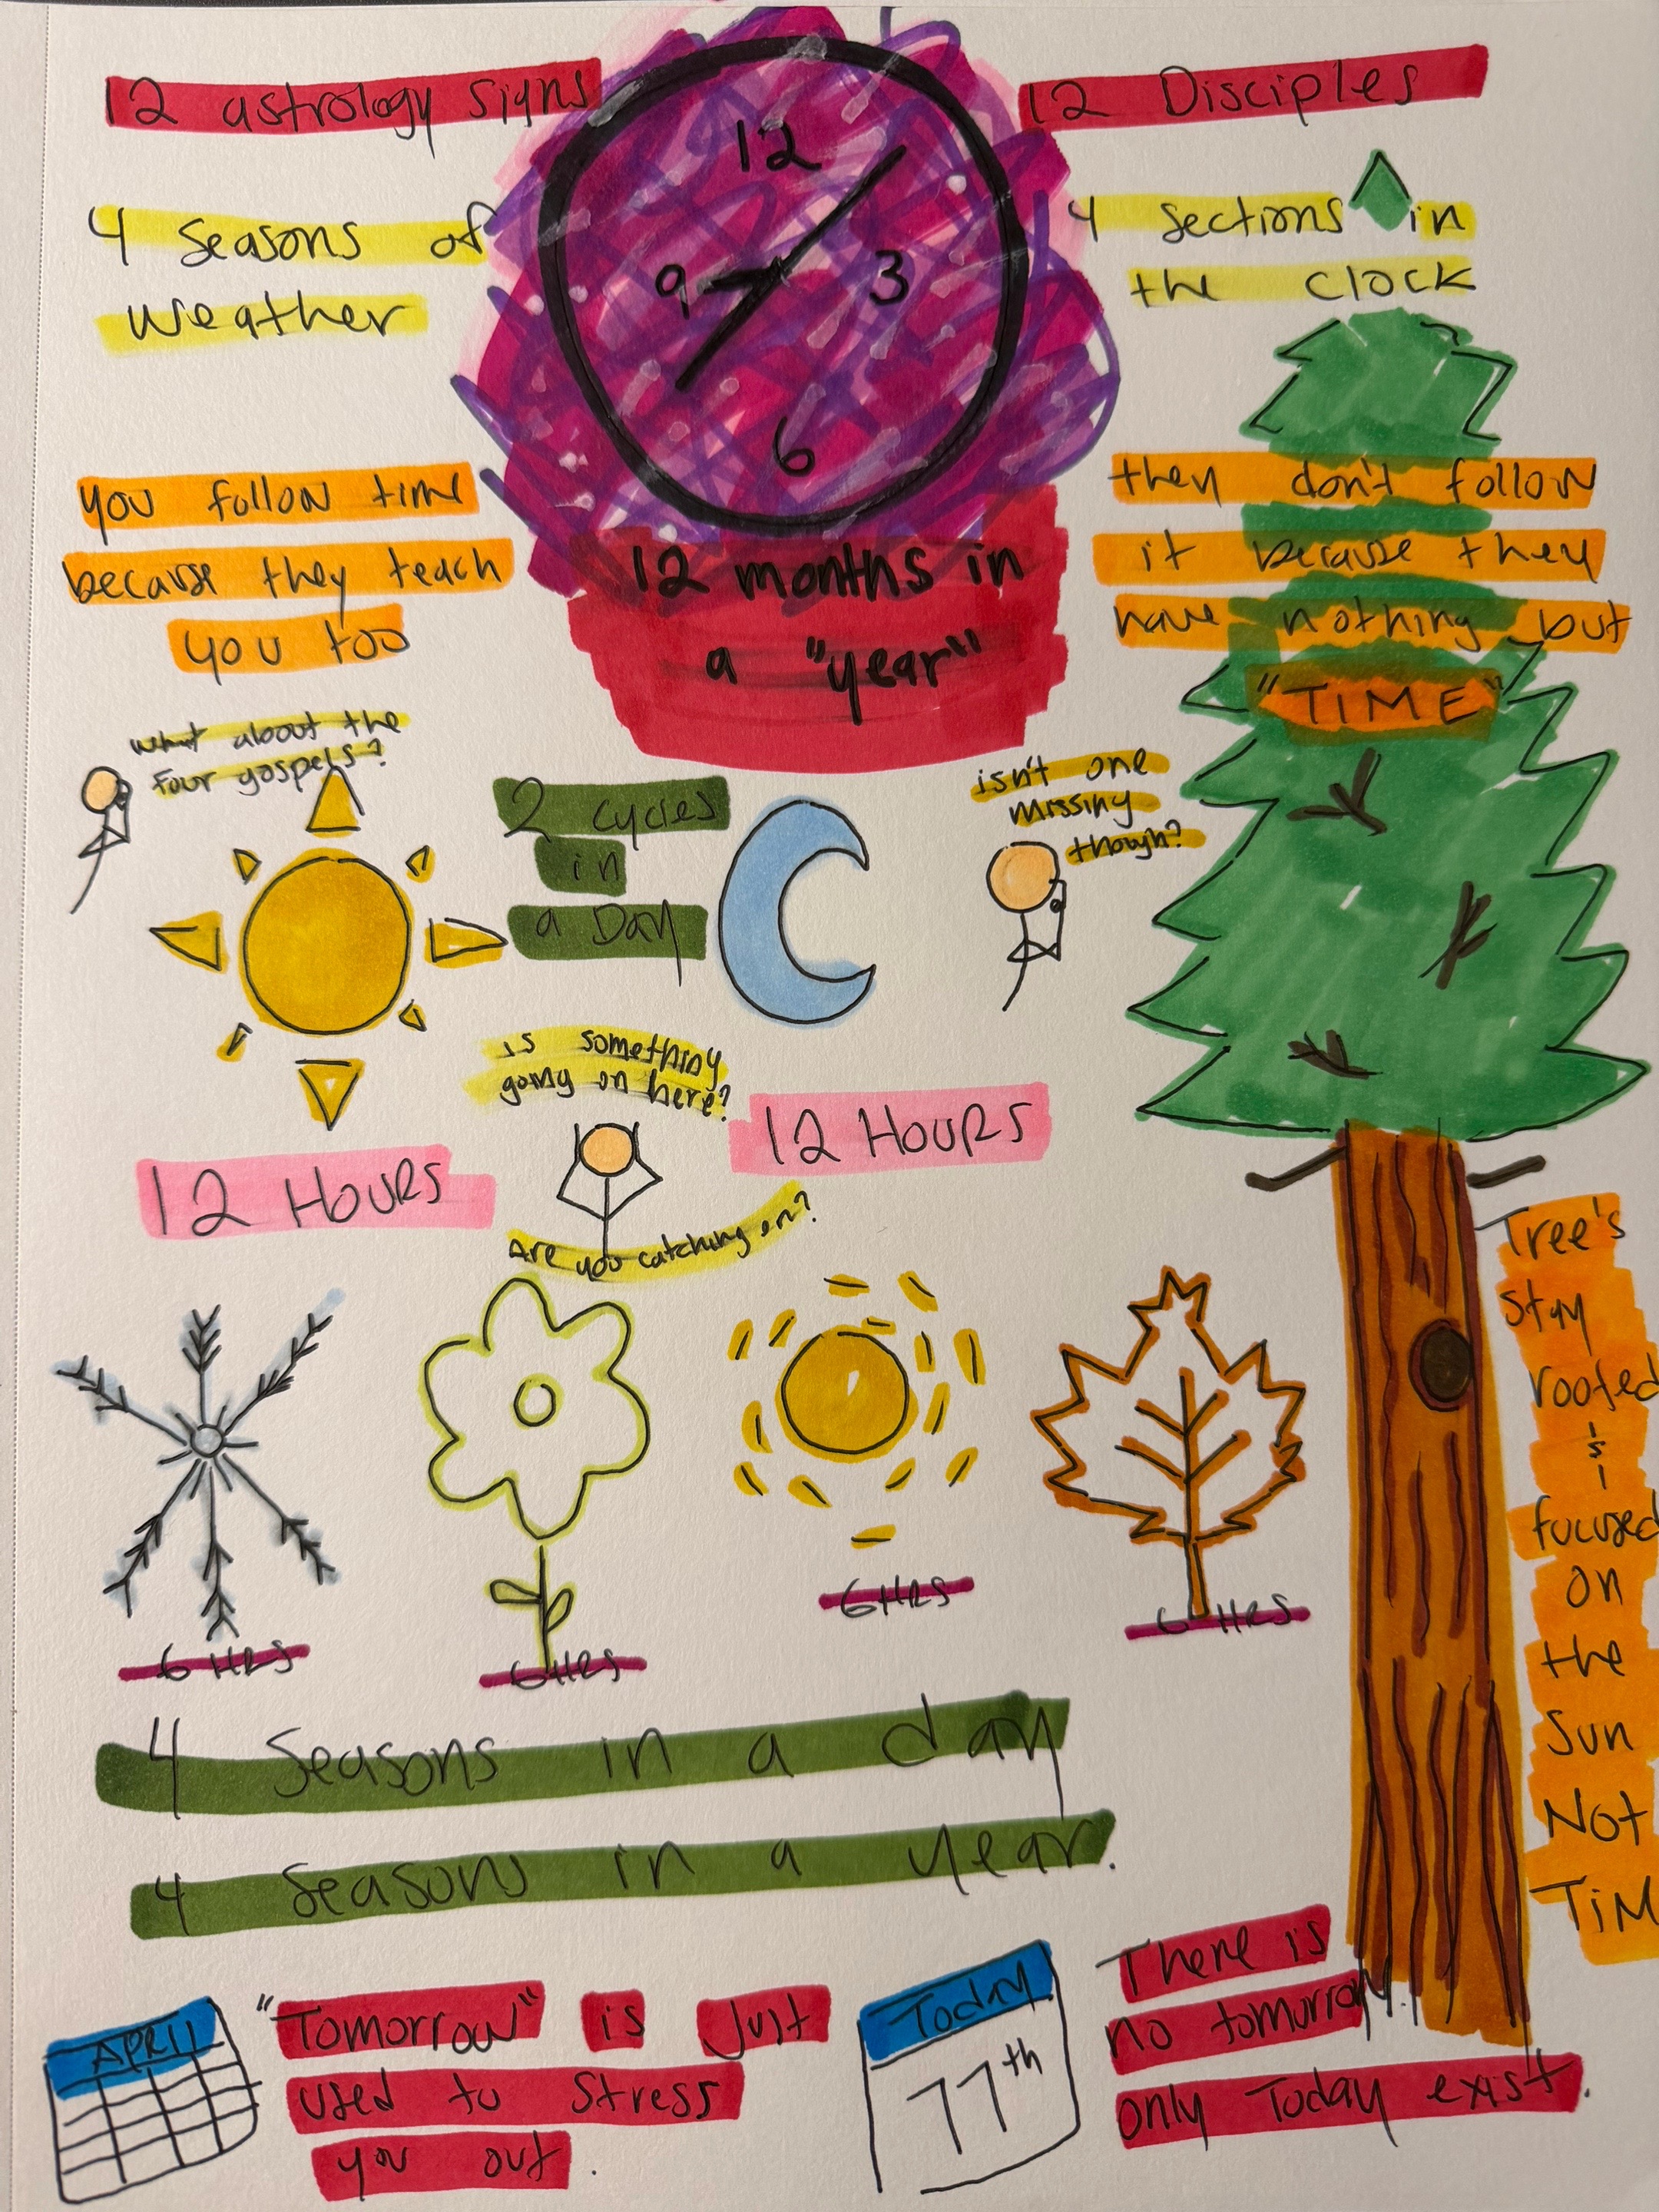 12 astrology signs
12 Disciples
12
9
3
6
4 Seasons of
weather
4 sections in
the clock
you follow time
because they teach
you too
they don't follow
it because they
have nothing but
"TIME"
12 months in
a "year"
what about the
four gospels?
2 cycles
in
a Day
isn't one
missing
though?
is something
going on here?
12 HOURS
12 HOURS
Are you catching on?
6 HRS
6 HRS
6 HRS
6 HRS
Tree's
stay
rooted
&
focused
on
the
Sun
Not
TiM
4 Seasons in a day
4 Seasons in a year.
APRIL
"Tomorrow" is Just
used to stress
you out.
Today
11th
There is
no tomorrow.
only Today exist.